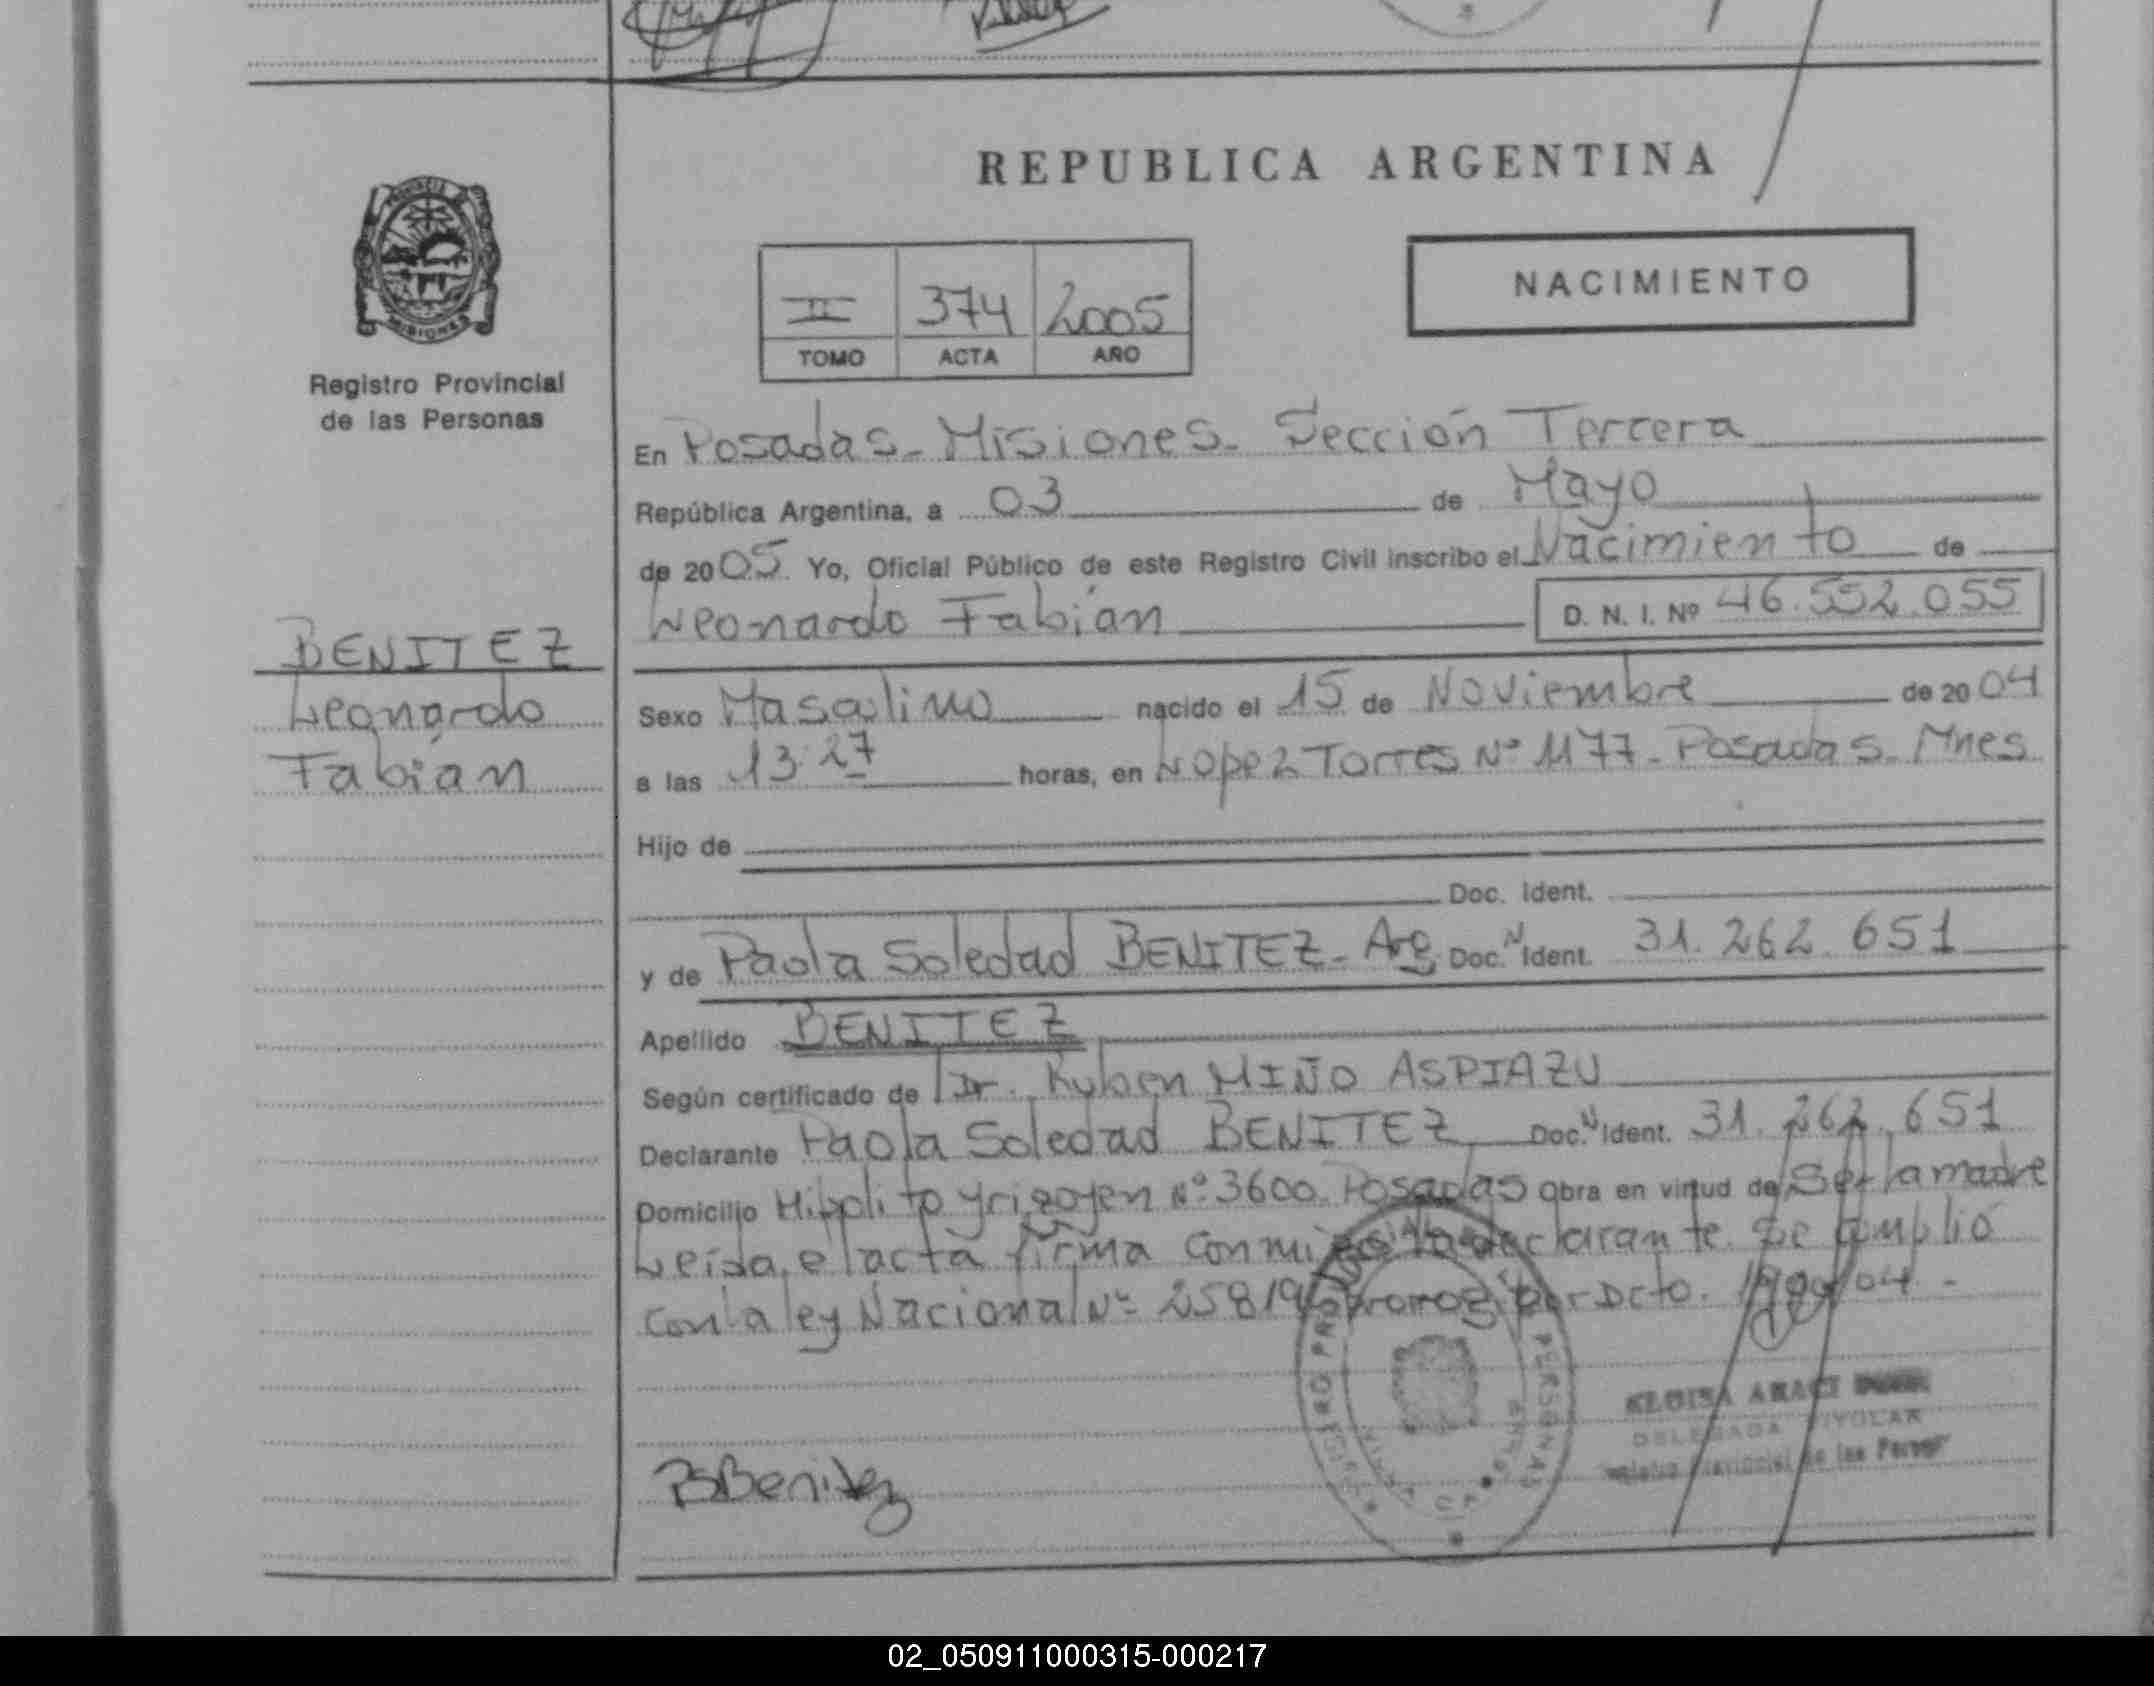 REPUBLICA ARGENTINA
PROVINCIA
MISIONES
Registro Provincial
de las Personas
NACIMIENTO
II 374 2005
TOMO ACTA AÑO
En Posadas - Misiones - Sección Tercera
República Argentina, a 03 de Mayo
de 2005 Yo, Oficial Público de este Registro Civil inscribo el Nacimiento de
Leonardo Fabián D. N. I. Nº 46.552.055
BENITEZ
Leonardo
Fabián
Sexo Masculino nacido el 15 de Noviembre de 2004
a las 13:27 horas, en Lopez Torres Nº 1177 - Posadas - Mnes
Hijo de
Doc. Ident.
y de Paola Soledad BENITEZ - Arg. Doc. N Ident. 31.262.651
Apellido BENITEZ
Según certificado de Dr. Ruben MIÑO ASPIAZU
Declarante Paola Soledad BENITEZ Doc. N Ident. 31.262.651
Domicilio Hipolito Yrigoyen Nº 3600 Posadas Obra en virtud de Ser la madre
Leída el acta firma conmigo la declarante. Se cumplió
con la ley Nacional Nº 25819 prorog. por Dcto.
PSBenitez
DELEGADA TITULAR
Registro Provincial de las Person
02_050911000315-000217